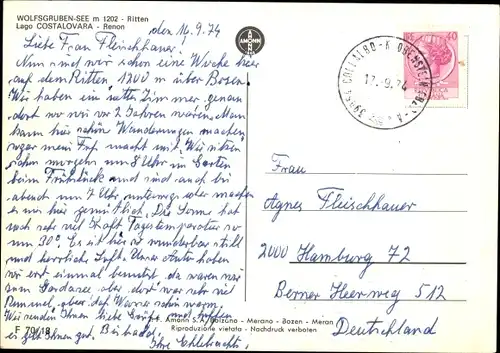 WOLFSGRUBEN-SEE m 1202 - Ritten
Lago COSTALOVARA - Renon
den 16.9.74
Liebe Frau Fleischhauer!
Nun sind wir schon eine Woche hier
auf dem Ritten, 1200 m über Bozen.
Wir haben ein nettes Zimmer, genau
dort wo wir vor 2 Jahren waren. Man
kann hier schöne Wanderungen machen,
sogar mein Fuß macht mit. Wir sitzen
schon morgens um 8 Uhr im Garten
beim Frühstück und sind auch bis
abends um 7 Uhr unterwegs oder machen
es uns hier gemütlich. Die Sonne hat
noch sehr viel Kraft, Tagestemperatur so
um 30°. Es ist hier so wunderbar still
und herrliche Luft. Unser Auto haben
wir erst einmal benutzt, da waren wir
zum Gardasee aber dort war sehr viel
Rummel, aber das Wasser schön warm.
Wir senden Ihnen liebe Grüße und hoffen
es geht Ihnen gut. Bis bald,
Ihre
AMONN
39054 COLLALBO - KLOBENSTEIN
17.-9.74
40
Frau
Agnes Fleischhauer
2000 Hamburg 72
Berner Heerweg 512
Deutschland
F 79/18
Amonn S.A. Bolzano - Merano - Bozen - Meran
Riproduzione vietata - Nachdruck verboten